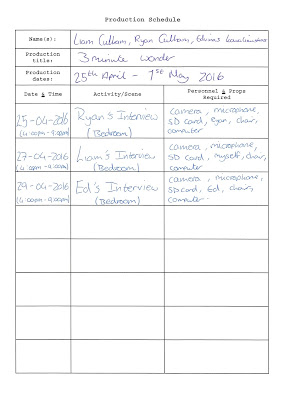 Production Schedule
Name(s): Liam Culham, Ryan Culham,
Production title: 3 minute wonder
Production dates: 25th April - 1st May 2016
Date & Time Activity/Scene Personnel & Props Required
25-04-2016 Ryan's Interview camera, microphone,
(4:00pm-9:00pm) (Bedroom) SD card, Ryan, chair,
computer
27-04-2016 Liam's Interview camera, microphone,
(4:00pm-9:00pm) (Bedroom) SD card, myself, chair,
computer
29-04-2016 Ed's Interview camera, microphone,
(4:00pm-9:00pm) (Bedroom) SD card, Ed, chair,
computer.